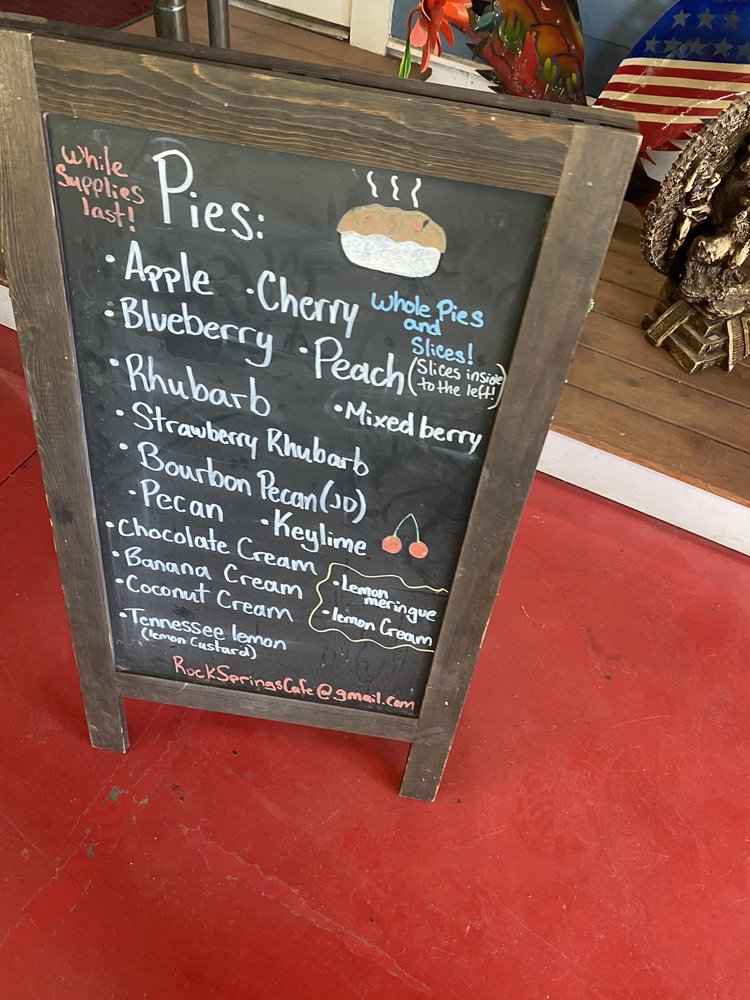 While
Supplies
last!
Pies:
• Apple • Cherry
whole Pies
and
Slices!
• Blueberry • Peach (Slices inside
to the left!)
• Rhubarb • Mixed berry
• Strawberry Rhubarb
• Bourbon Pecan (JD)
• Pecan • Keylime
• Chocolate Cream
• Banana Cream
• Coconut Cream
• Lemon
meringue
• lemon Cream
• Tennessee lemon
(lemon Custard)
RockSpringsCafe@gmail.com